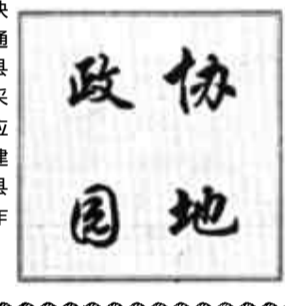 政协
园地